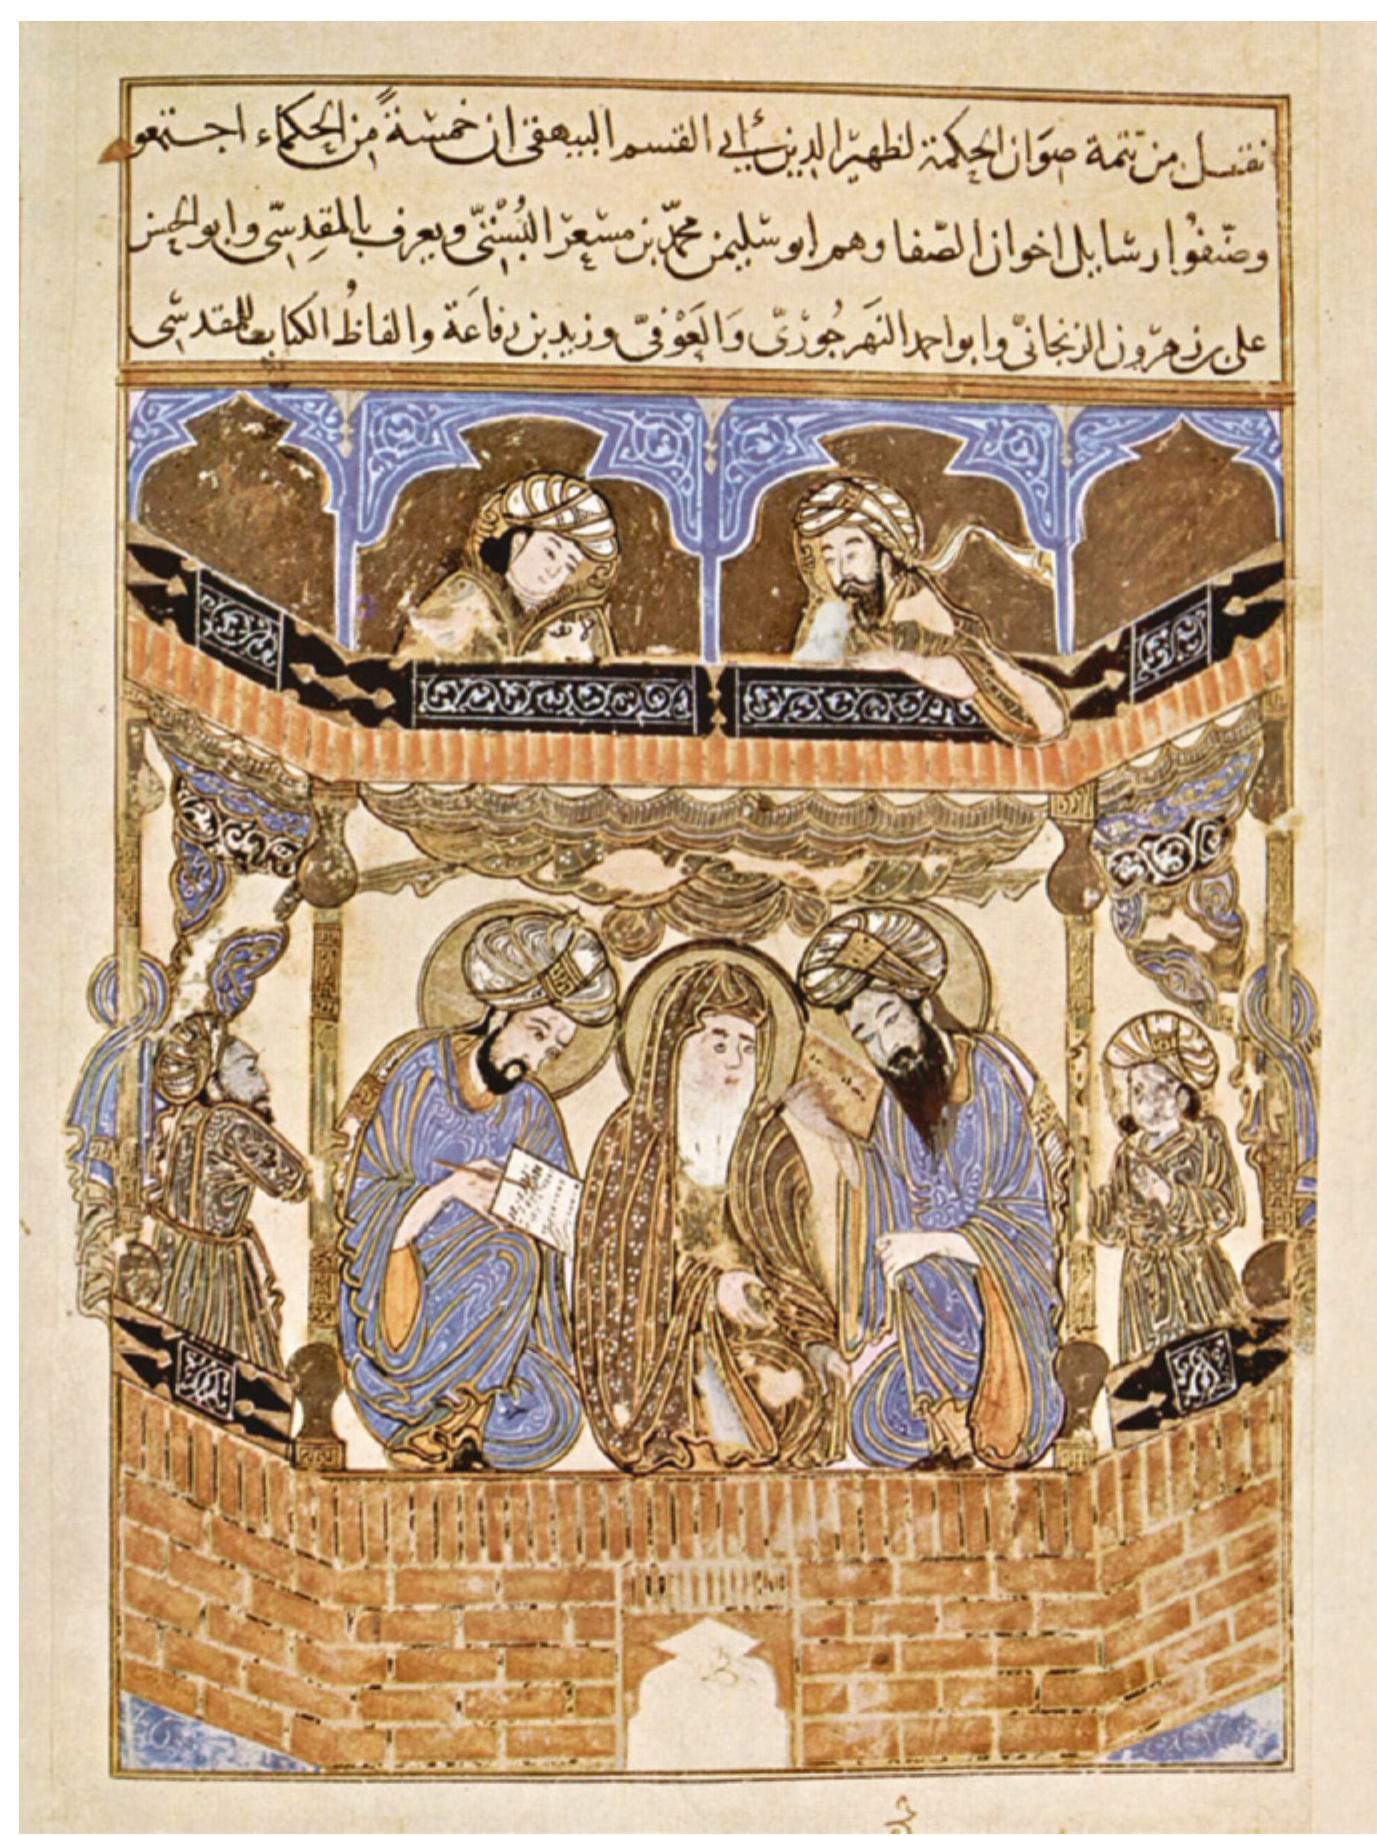 نقل من تتمة صوان الحكمة لظهير الدين أبي القسم البيهقي ان خمسةً من الحكماء اجتمعو
وصنفوا رسايل اخوان الصفا وهم ابو سليمن محمد بن مسعر البُستيّ ويعرف بالمقدسيّ وابو الحسن
علي بن زهرون الزنجانيّ وابو احمد النهرجُوريّ وَالعَوْفيّ وزيد بن رفاعَة والفاظُ الكتاب للمقدسي